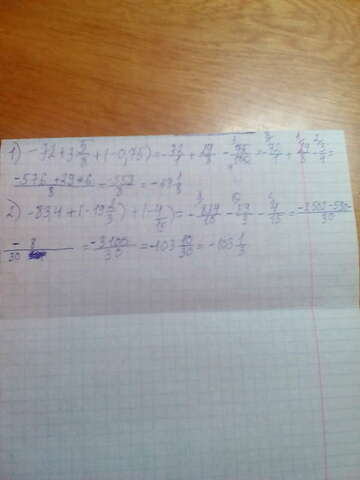 1) -72+3 5/8 +(-0,75)=-72/1 + 29/8 - 75/100=-72/1 + 29/8 - 3/4=
-576+29+6/8 =-553/8=-69 1/8
2) -83,4+(-19 2/3)+(-4/15)=-834/10 - 59/3 - 4/15=-2502-590-
-8/30 =-3100/30=-103 10/30=-103 1/3